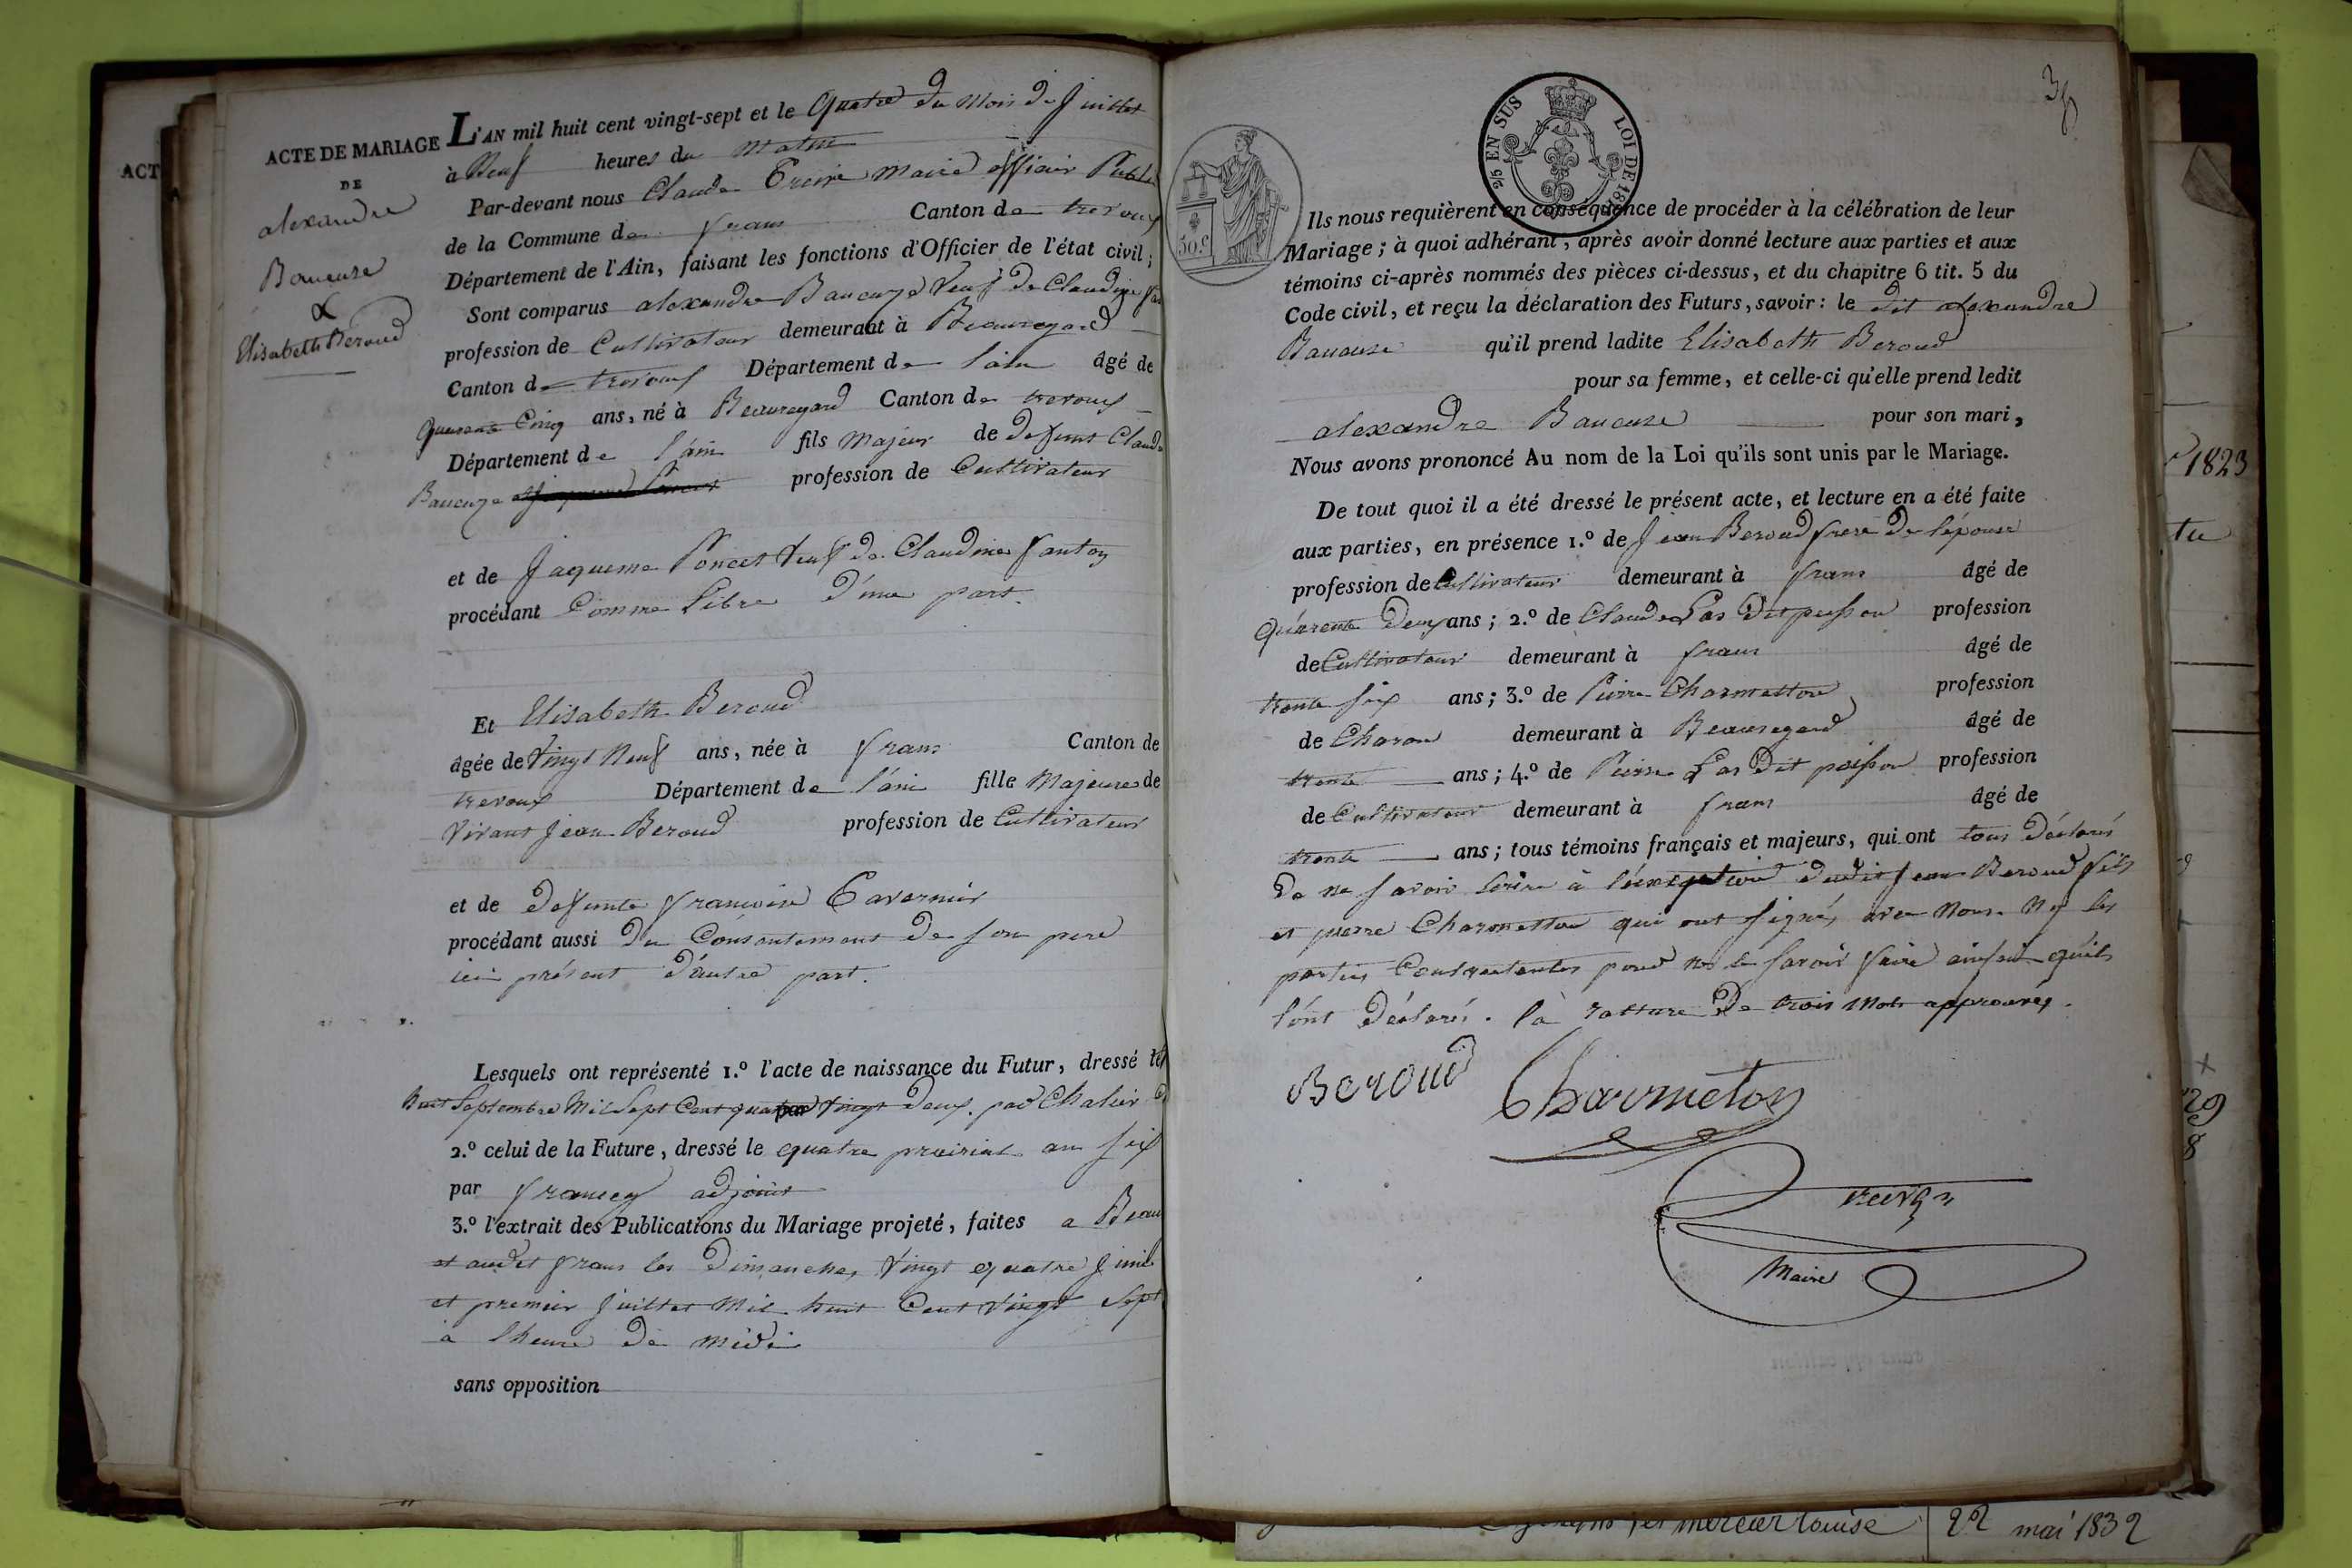 ACT
ACTE DE MARIAGE
DE
alexandre
Baucuse
&
Elisabeth Beroud
L'AN mil huit cent vingt-sept et le Quatre du Mois de Juillet
à Neuf heures du Matin
Par-devant nous Claude maire officier Public
de la Commune de frans Canton de trevoux
Département de l'Ain, faisant les fonctions d'Officier de l'état civil;
Sont comparus alexandre Baucuze Veuf de Claudine
profession de Cultivateur demeurant à Beauregard
Canton de trevoux Département de l'ain âgé de
quarante Cinq ans, né à Beauregard Canton de trevoux
Département de l'ain fils Majeur de defunt Claude
Baucuze profession de Cultivateur
et de Jaqueme Poncet Veuf de Claudine fanton
procédant Comme Libre D'une part.
Et Elisabeth Beroud
âgée de Vingt Neuf ans, née à frans Canton de
trevoux Département de l'ain fille Majeure de
Vivant Jean Beroud profession de Cultivateur
et de defunte francoise Tavernier
procédant aussi Du Consentement De son pere
ici présent D'autre part.
Lesquels ont représenté 1.º l'acte de naissance du Futur, dressé le
huit Septembre Mil Sept Cent quatre Vingt Deux. par Chalier
2.º celui de la Future, dressé le quatre prairial an six
par adjoint
3.º l'extrait des Publications du Mariage projeté, faites a Beau
et audit frans les Dimanches Vingt quatre Juin
et premier Juillet Mil huit Cent Vingt Sept
à l'heure De midi
sans opposition
38
2/5 EN SUS
LOI DE 18
50.c
Ils nous requièrent en conséquence de procéder à la célébration de leur
Mariage; à quoi adhérant, après avoir donné lecture aux parties et aux
témoins ci-après nommés des pièces ci-dessus, et du chapitre 6 tit. 5 du
Code civil, et reçu la déclaration des Futurs, savoir: le dit alexandre
Baucuse qu'il prend ladite Elisabeth Beroud
pour sa femme, et celle-ci qu'elle prend ledit
alexandre Baucuse pour son mari,
Nous avons prononcé Au nom de la Loi qu'ils sont unis par le Mariage.
De tout quoi il a été dressé le présent acte, et lecture en a été faite
aux parties, en présence 1.º de Jean Beroud frere De l'épouse
profession de Cultivateur demeurant à frans âgé de
quarante Deux ans; 2.º de Claude Las Dit poisson profession
de Cultivateur demeurant à frans âgé de
trente six ans; 3.º de Pierre Charmetton profession
de Charon demeurant à Beauregard âgé de
trente ans; 4.º de Pierre Las Dit poisson profession
de Cultivateur demeurant à frans âgé de
trente ans; tous témoins français et majeurs, qui ont tous Déclarés
De ne savoir Ecrire à l'éxception dudit Jean Beroud fils
et pierre Charmetton qui ont signés avec Nous. Non les
parties Contractantes pour ne le savoir faire ainsi qu'ils
l'ont Déclarés. là ratture De trois Mots approuvés.
Beroud
Charmeton
Maire
1823
tu
29
8
mercier louise 22 mai 1832